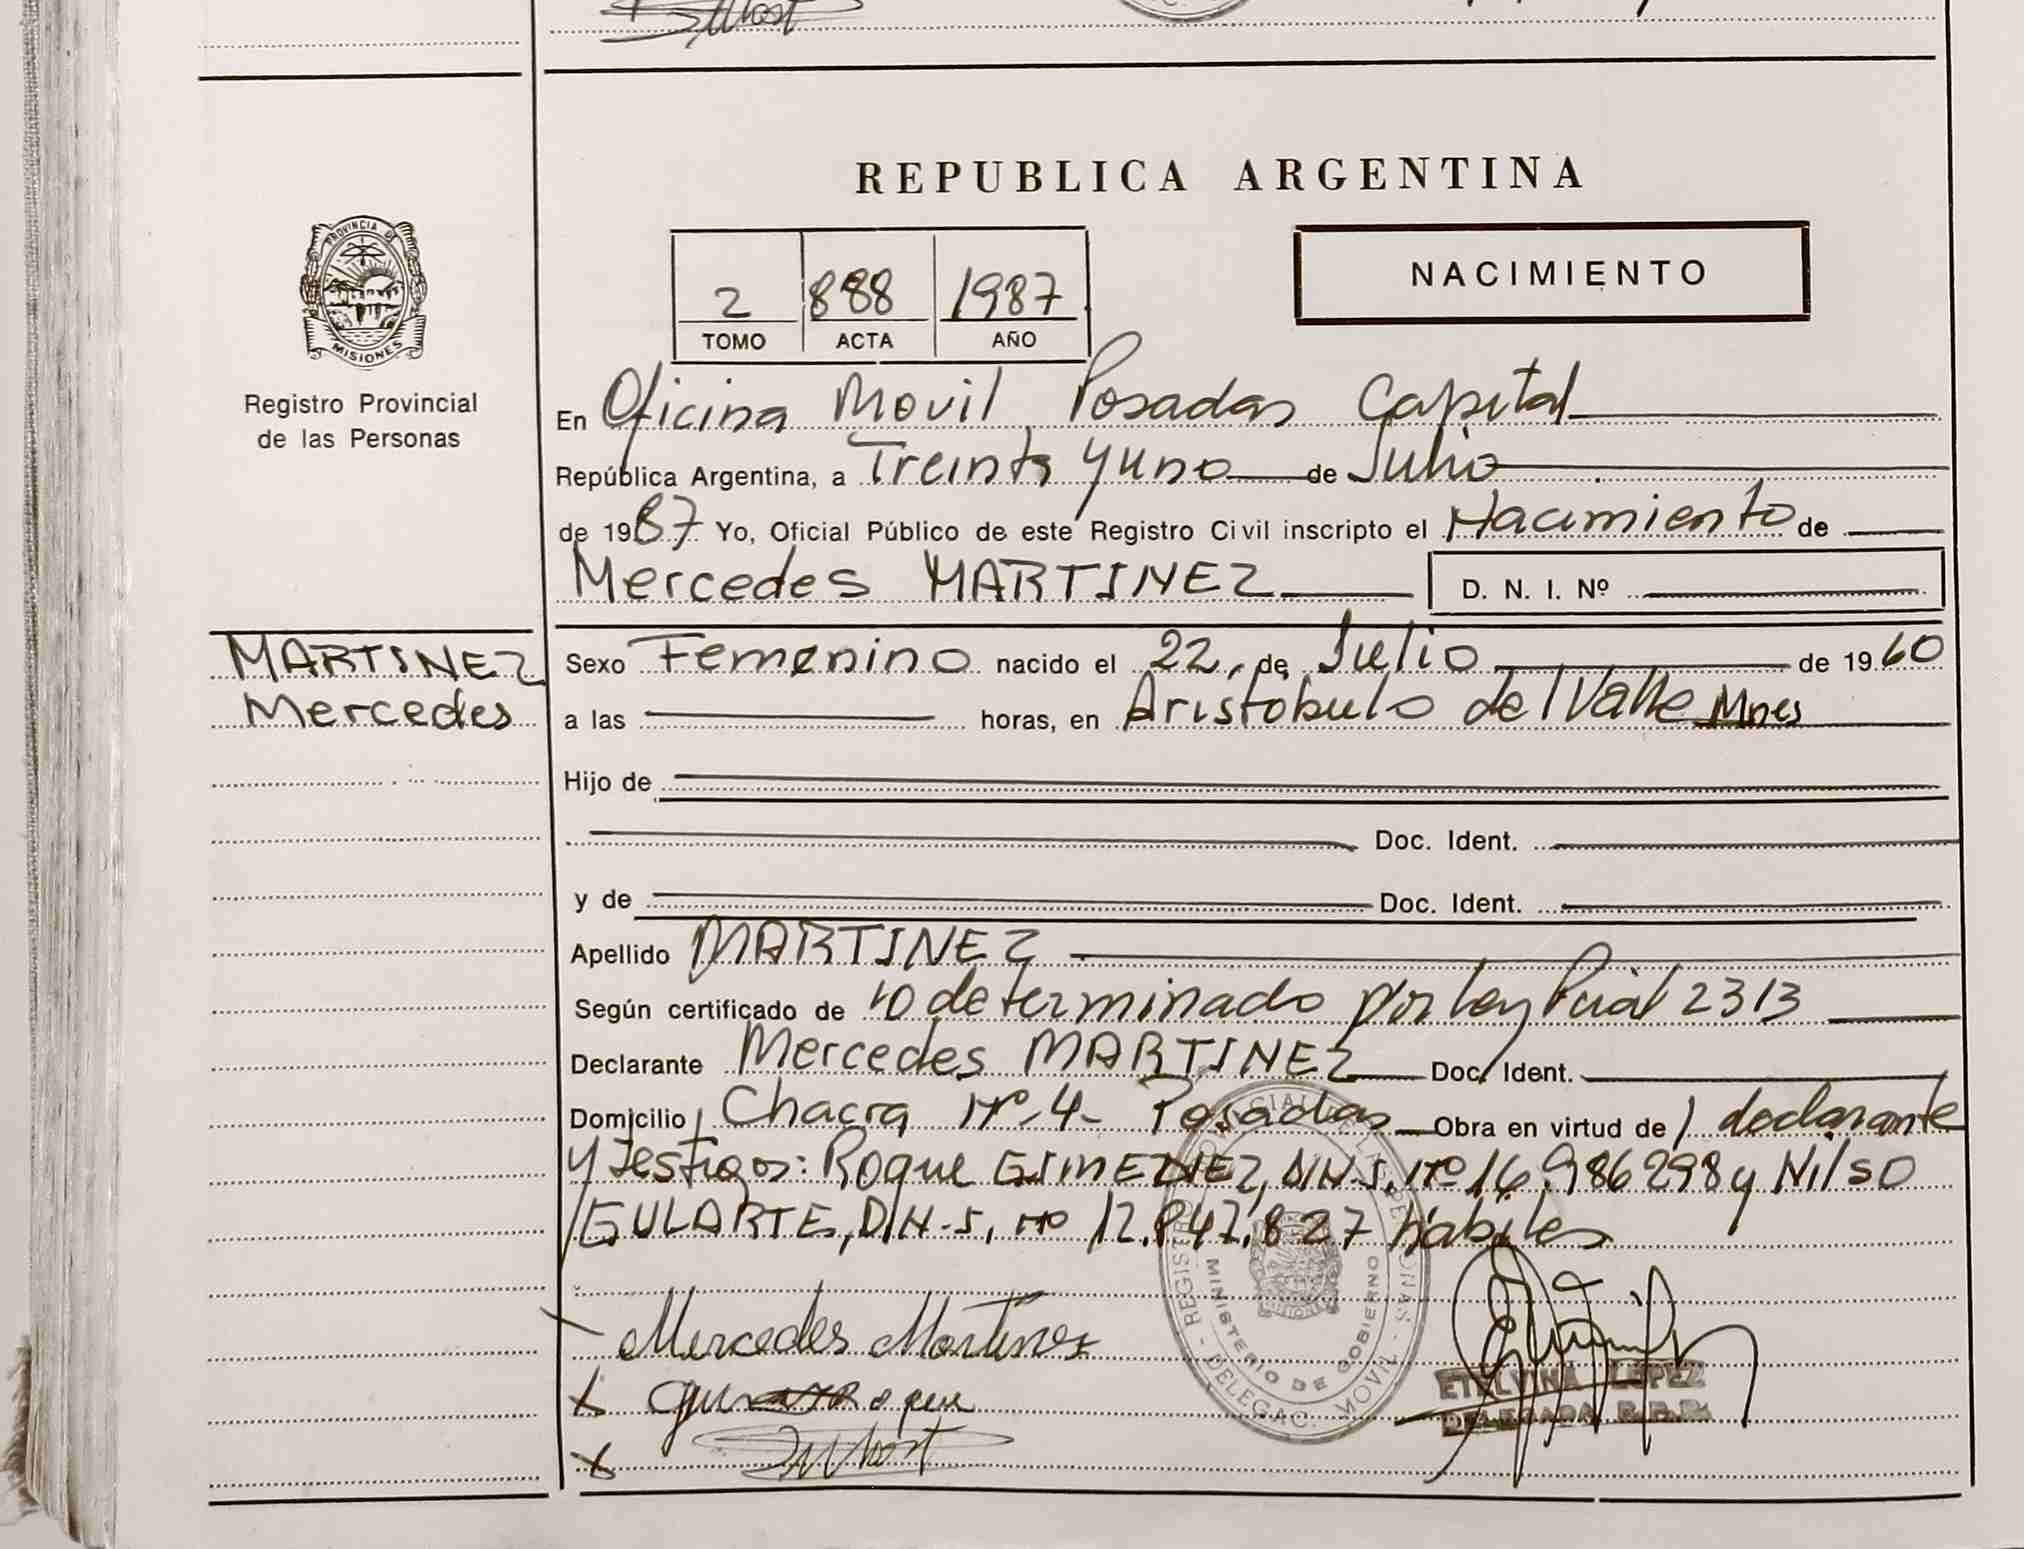 REPUBLICA ARGENTINA
PROVINCIA DE
MISIONES
Registro Provincial
de las Personas
2 888 1987
TOMO ACTA AÑO
NACIMIENTO
En Oficina Movil Posadas Capital
República Argentina, a Treinta y uno de Julio
de 1987 Yo, Oficial Público de este Registro Civil inscripto el Nacimiento de
Mercedes MARTINEZ D. N. I. Nº
MARTINEZ
Mercedes
Sexo Femenino nacido el 22 de Julio de 1960
a las horas, en Aristobulo del Valle Mnes
Hijo de
Doc. Ident.
y de Doc. Ident.
Apellido MARTINEZ
Según certificado de lo determinado por Ley Pcial 2313
Declarante Mercedes MARTINEZ Doc. Ident.
Domicilio Chacra Nº 4- Posadas Obra en virtud de declarante
y Testigos: Roque GIMENEZ, D.N.I. Nº 16.986298 y Nilso
GULARTE, D.N.I. nº 12.847.827 hábiles
Mercedes Martinez
Roque
REGISTRO PROVINCIAL DE LAS PERSONAS - DELEGAC. MOVIL -
MINISTERIO DE GOBIERNO
ETELVINA LOPEZ
DELEGADA R.P.P.